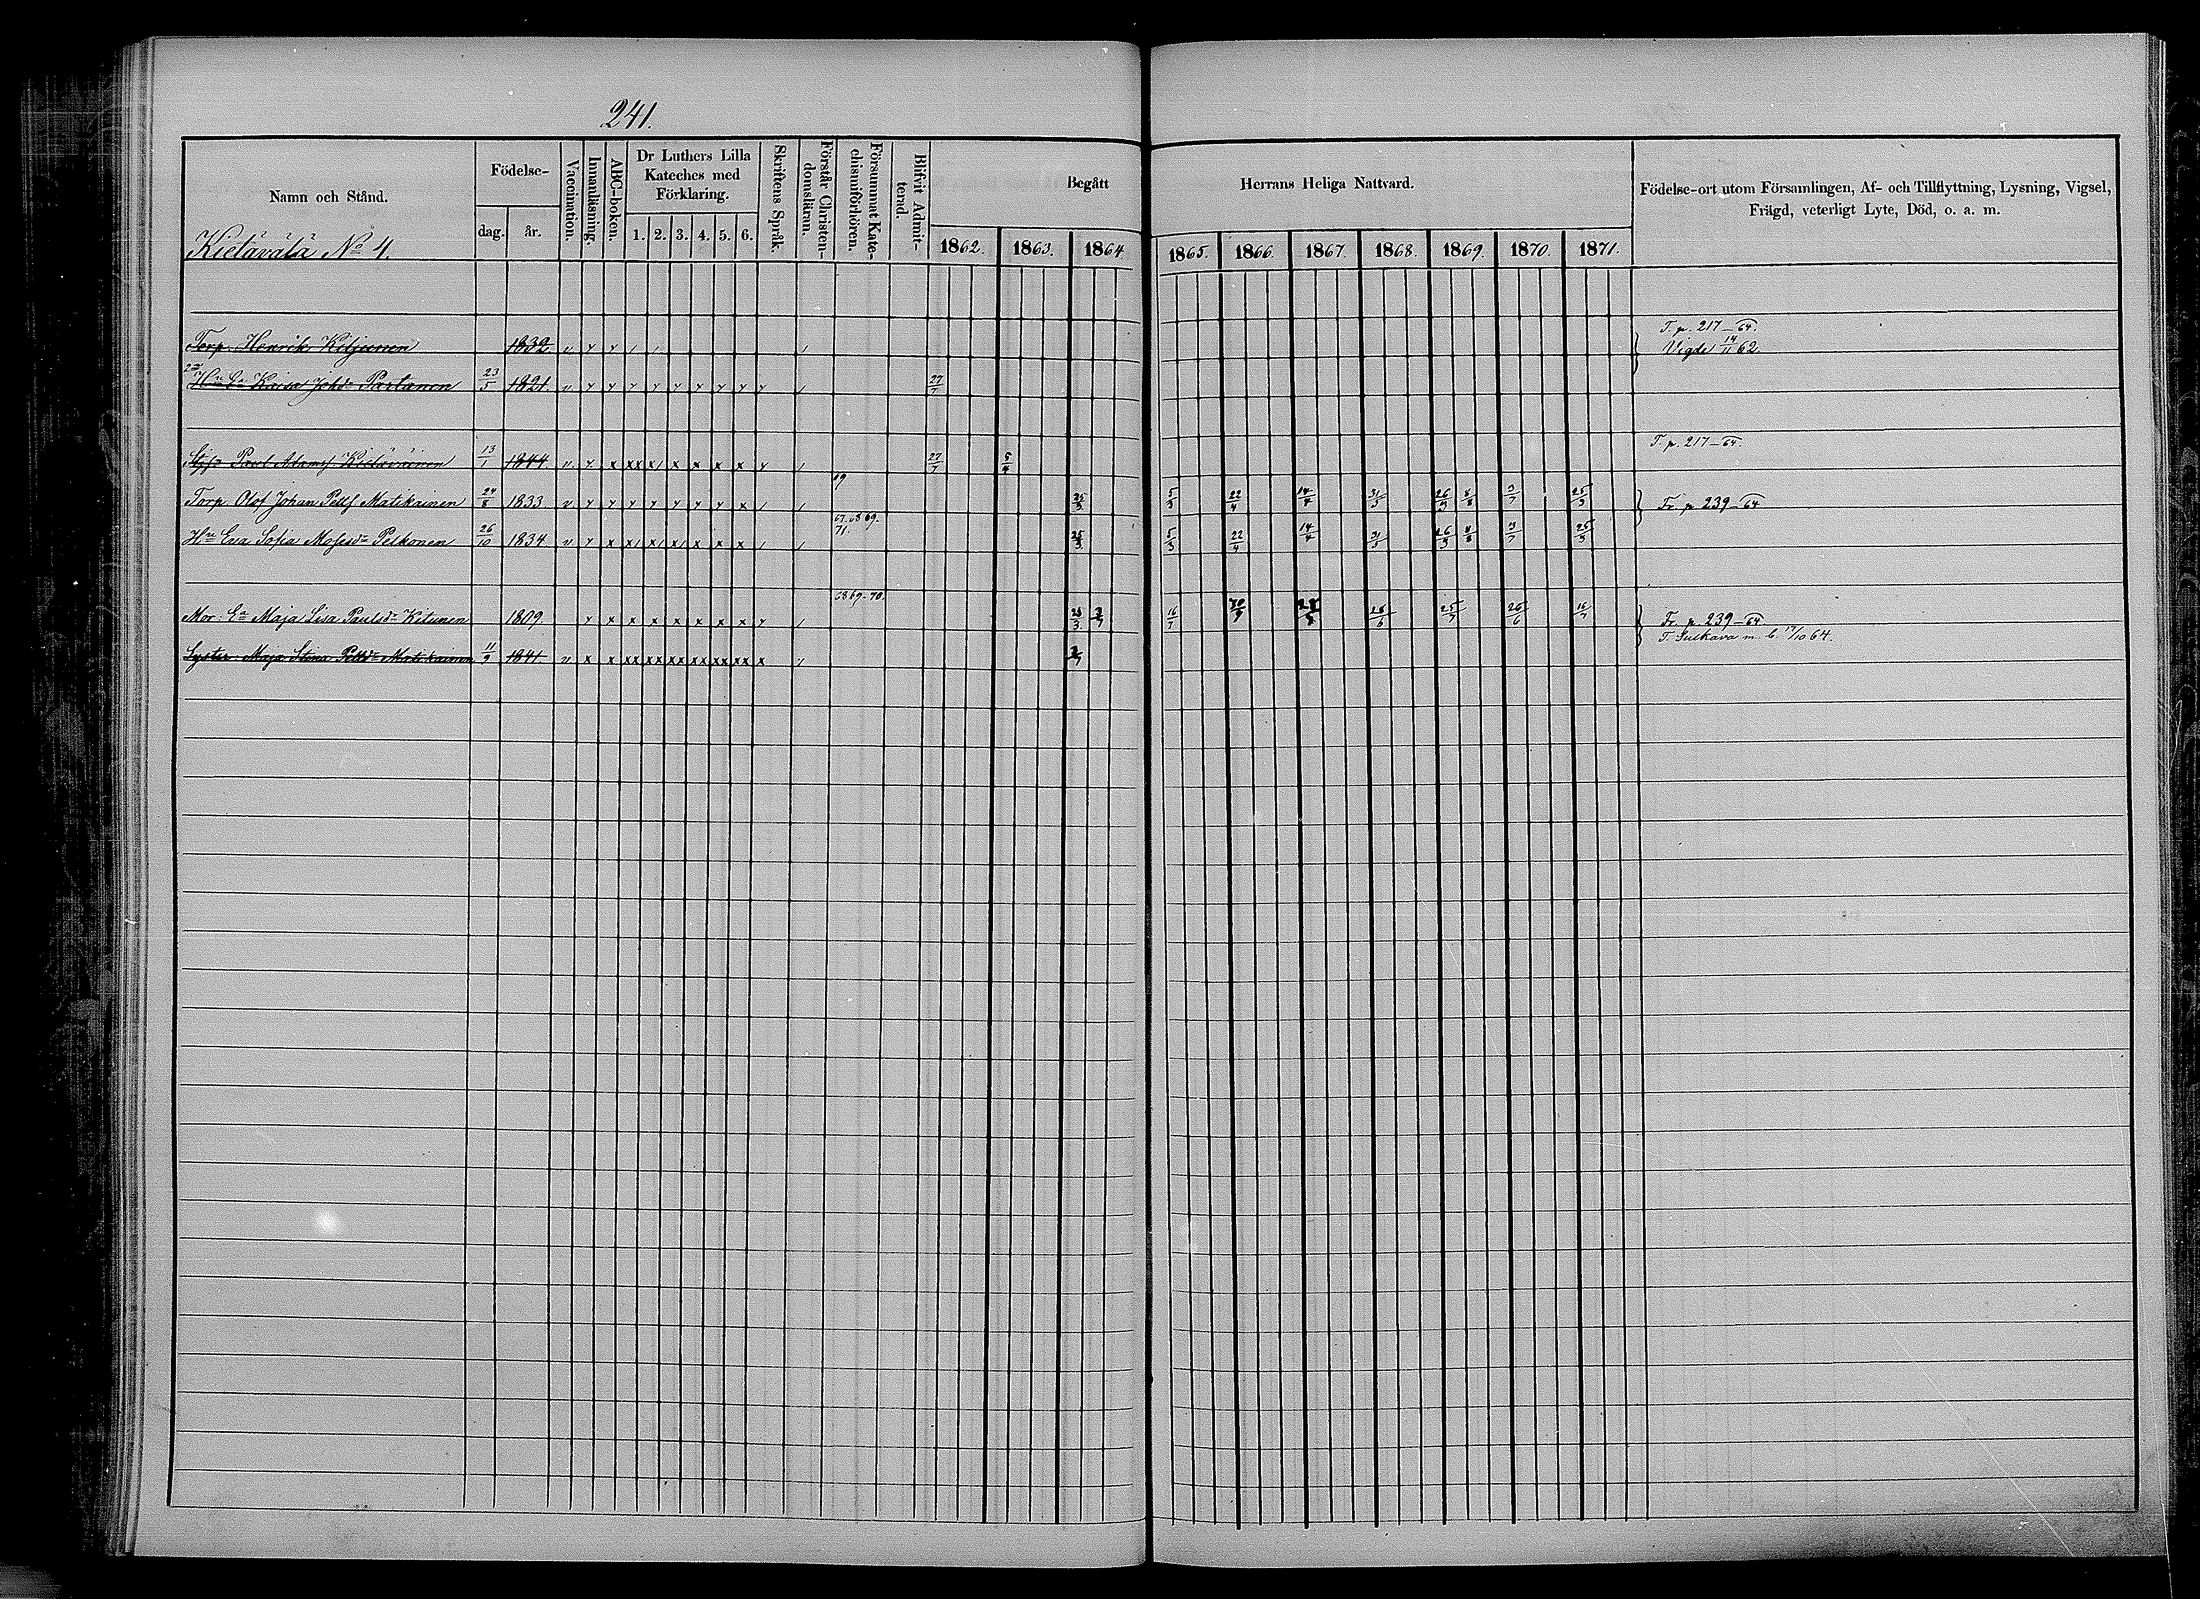 241.
Namn och Stånd.
Kietävälä No 4.
Födelse-
dag. år.
Vaccination.
Innanläsning.
ABC-boken.
Dr Luthers Lilla
Kateches med
Förklaring.
1. 2. 3. 4. 5. 6.
Skriftens Språk.
Förstår Christen-
domsläran.
Försummat Kate-
chismiförhören.
Blifvit Admit-
terad.
Begått Herrans Heliga Nattvard.
1862. 1863. 1864 1865. 1866. 1867. 1868. 1869. 1870. 1871.
Födelse-ort utom Församlingen, Af- och Tillflyttning, Lysning, Vigsel,
Frägd, veterligt Lyte, Död, o. a. m.
T. p. 217-64.
Torp. Henrik Kiljunen 1832 v y y / / / Vigde 14/11 62
Kaisa Johsdr Partanen 23/5 1821 v y y y y y y y y y / 27/7
T. p. 217-64.
Paul Adamsf Kietäväinen 13/1 1844 v y x xx x/ x x x x y / 27/7 5/4
69
Torp. Olof Johan Pettf Matikainen 24/8 1833 v y y y y y y y x / / 25/3 5/3 22/4 14/4 31/5 26/3 8/8 3/7 25/3 Fr. p. 239-64
67.68 69.
71.
Hu Eva Sofia Mosesdr Pelkonen 26/10 1834 v y x x/ x/ x/ x x x / / 25/3 5/3 22/4 14/4 31/5 26/3 8/8 3/7 25/3
68 69-70.
Mor: Ea Maja Lisa Paulsdr Kitunen 1809 y x x x x x x x y / 28/3 3/7 16/7 28/6 25/7 26/6 16/7 Fr. p. 239-64
m. b. 17/10 64.
Syster: Maja Stina Pettdr Matikainen 11/9 1841 v x x xx xx xx xx xx xx x / 3/7